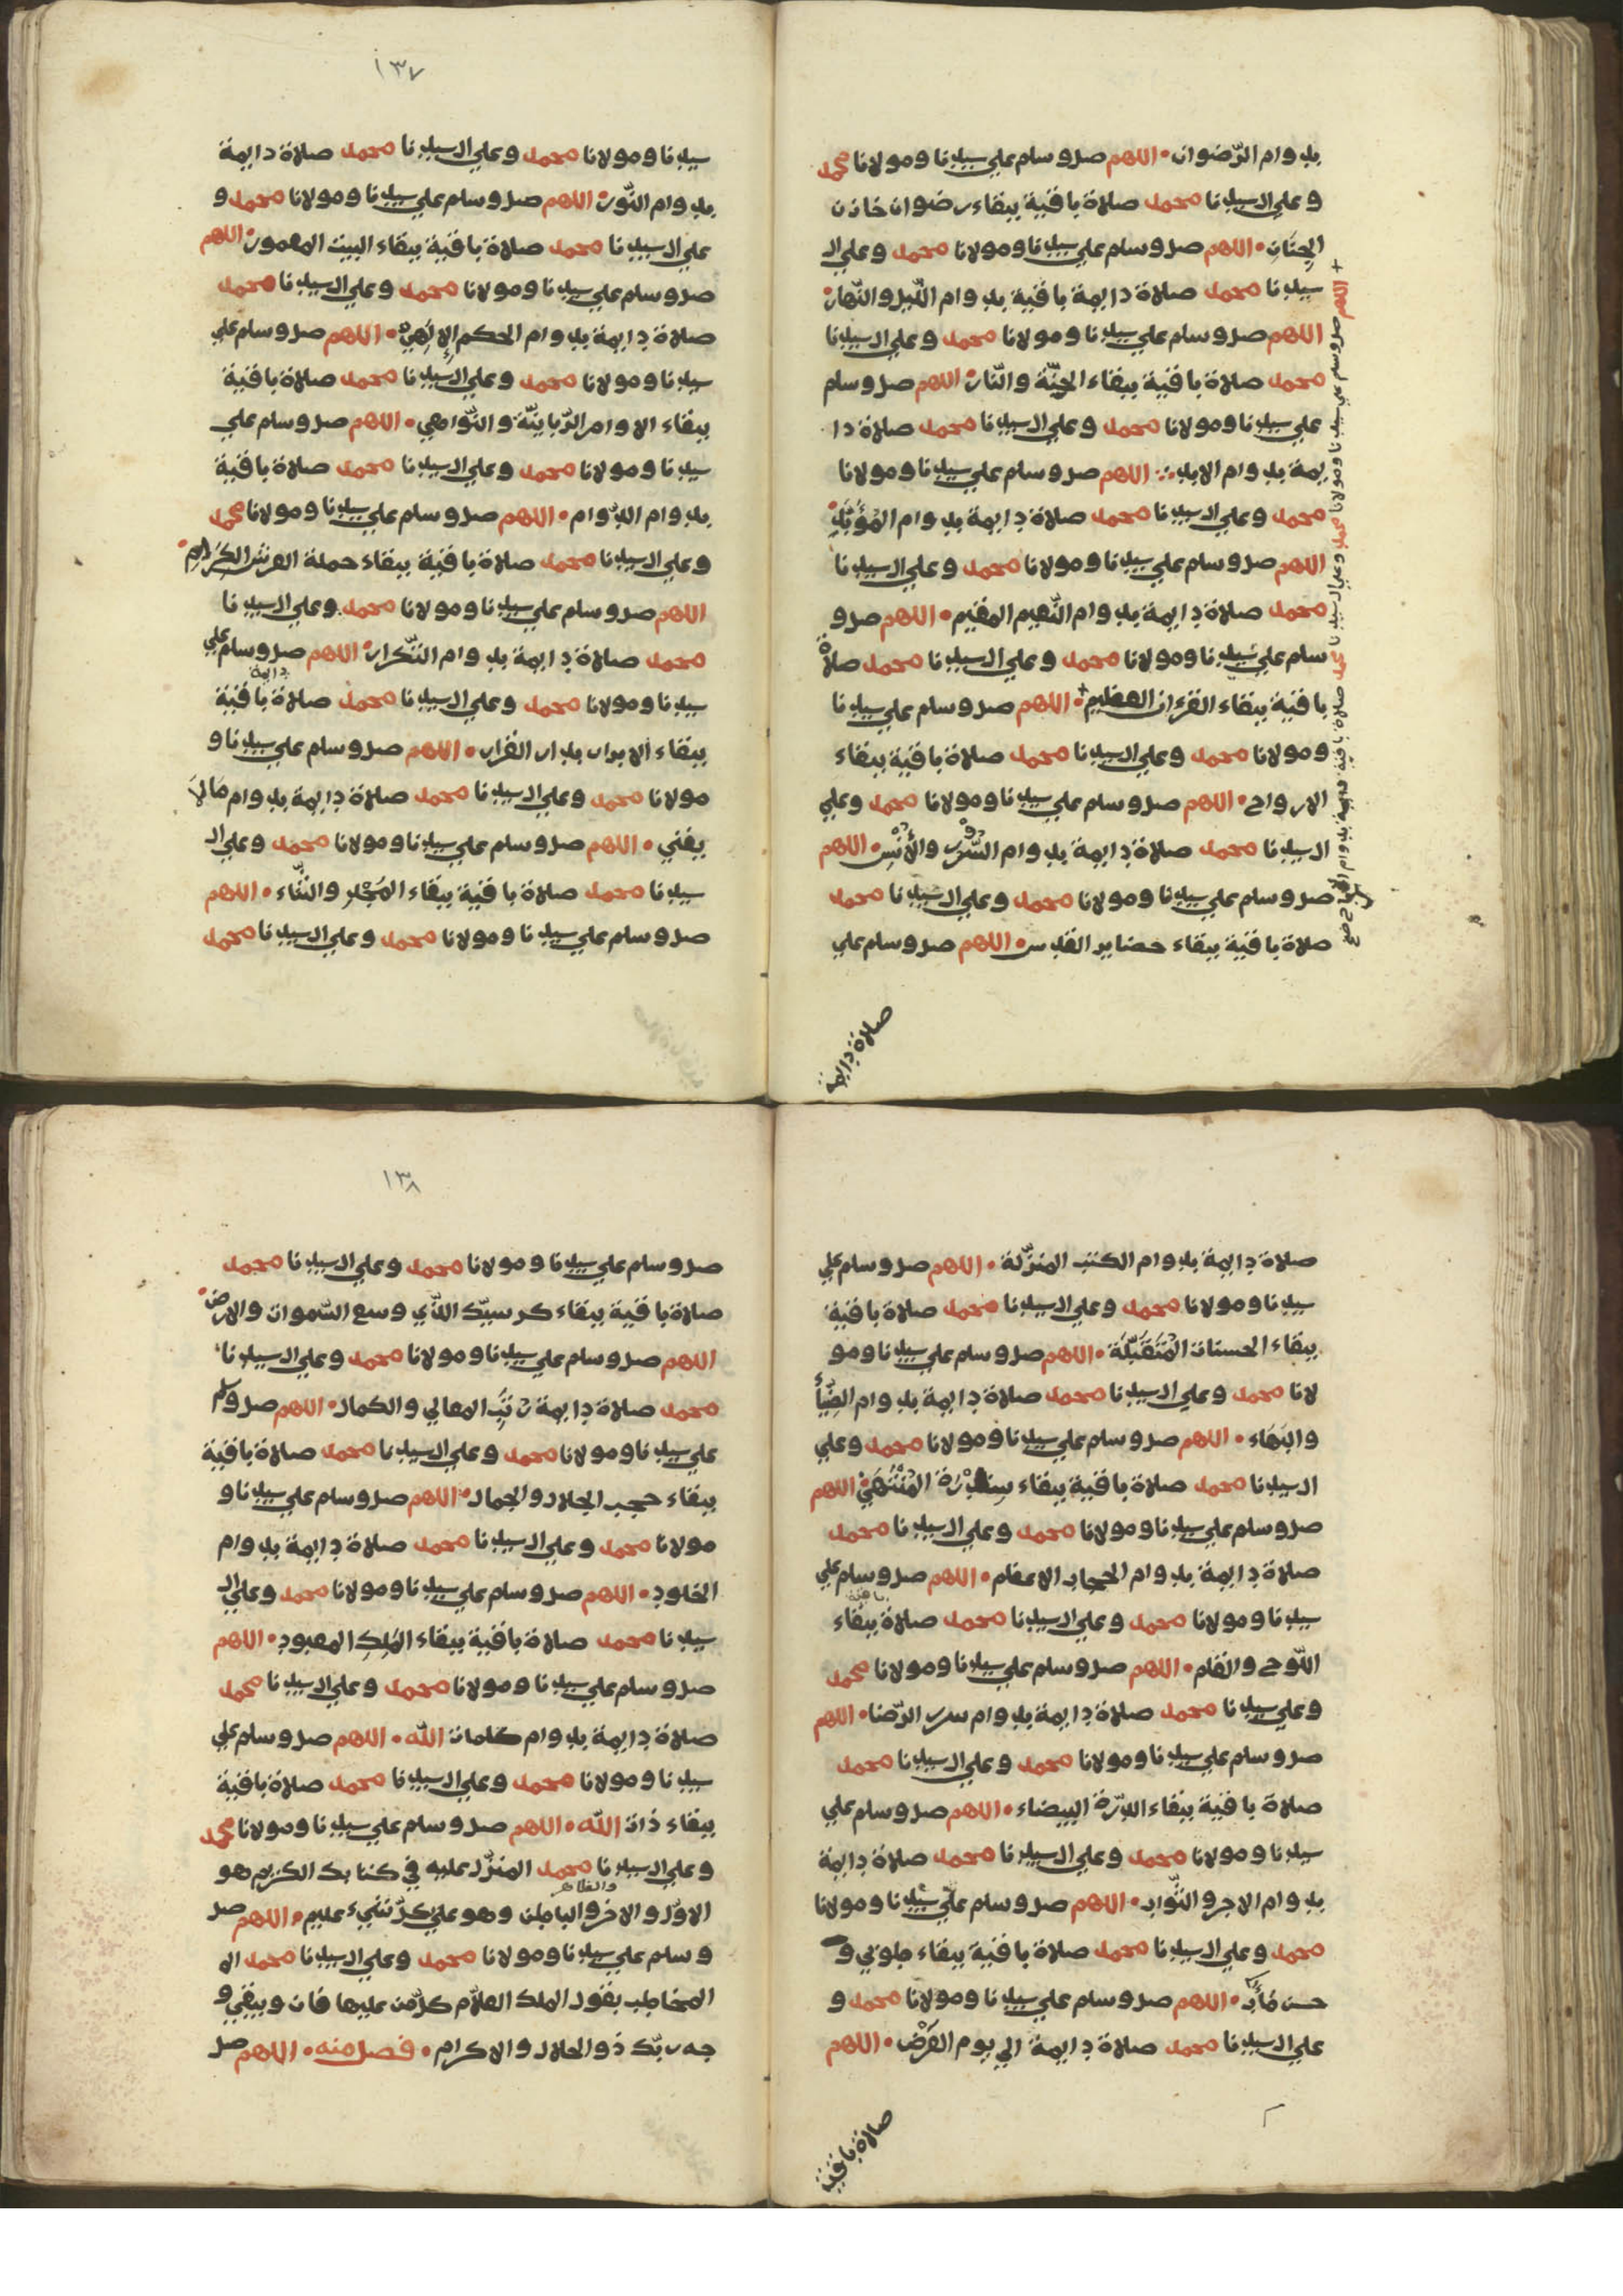 بدوام الرّضوان • اللهم صل وسلم علي سيدنا ومولانا محمد
وعلي ال سيدنا محمد صلاة باقية ببقاء رضوان خازن
الجِنَان • اللهم صل وسلم علي سيدنا ومولانا محمد وعلي ال
سيدنا محمد صلاة دايمة باقية بدوام اللّيل والنّهار •
اللهم صل وسلم علي سيدنا ومولانا محمد وعلي ال سيدنا
محمد صلاة باقية ببقاء الجنّة والنّار • اللهم صل وسلم
علي سيدنا ومولانا محمد وعلي ال سيدنا محمد صلاة دا
يمة بدوام الابد ∴ اللهم صل وسلم علي سيدنا ومولانا
محمد وعلي ال سيدنا محمد صلاة دايمة بدوام المُؤَبَّدِ •
اللهم صل وسلم علي سيدنا ومولانا محمد وعلي ال سيدنا
محمد صلاة دايمة بدوام النّعيم المقيم • اللهم صل و
سلم علي سيدنا ومولانا محمد وعلي ال سيدنا محمد صلاة
باقية ببقاء القرءان العظيم + • اللهم صل وسلم علي سيدنا
ومولانا محمد وعلي ال سيدنا محمد صلاة باقية ببقاء
الارواح • اللهم صل وسلم علي سيدنا ومولانا محمد وعلي
ال سيدنا محمد صلاة دايمة بدوام السُّرُور والأُنْسِ • اللهم
صل وسلم علي سيدنا ومولانا محمد وعلي ال سيدنا محمد
صلاة باقية ببقاء حضاير القدس • اللهم صل وسلم علي
+ اللهم صل وسلم علي سيدنا ومولانا محمد وعلي ال سيدنا محمد صلاة باقية دايمة بدوام صح
صلاة دايمة
١٣٧
سيدنا ومولانا محمد وعلي ال سيدنا محمد صلاة دايمة
بدوام النّور • اللهم صل وسلم علي سيدنا ومولانا محمد و
علي ال سيدنا محمد صلاة باقية ببقاء البيت المعمور • اللهم
صل وسلم علي سيدنا ومولانا محمد وعلي ال سيدنا محمد
صلاة دايمة بدوام الحكم الإلَهِيّ • اللهم صل وسلم علي
سيدنا ومولانا محمد وعلي ال سيدنا محمد صلاة باقية
ببقاء الاوامر الرّبانيّة والنّواهي • اللهم صل وسلم علي
سيدنا ومولانا محمد وعلي ال سيدنا محمد صلاة باقية
بدوام الدّوام • اللهم صل وسلم علي سيدنا ومولانا محمد
وعلي ال سيدنا محمد صلاة باقية ببقاء حملة العرش الكِرَامِ •
اللهم صل وسلم علي سيدنا ومولانا محمد وعلي ال سيدنا
محمد صلاة دايمة بدوام التّكرار • اللهم صل وسلم علي
دايمة
سيدنا ومولانا محمد وعلي ال سيدنا محمد صلاة باقية
ببقاء الابرار بدار القرار • اللهم صل وسلم علي سيدنا و
مولانا محمد وعلي ال سيدنا محمد صلاة دايمة بدوام مَا لَا
يفني • اللهم صل وسلم علي سيدنا ومولانا محمد وعلي ال
سيدنا محمد صلاة باقية ببقاء المَجْدِ والثّناء • اللهم
صل وسلم علي سيدنا ومولانا محمد وعلي ال سيدنا محمد
صلاة دايمة بدوام الكتب المنزّلة • اللهم صل وسلم علي
سيدنا ومولانا محمد وعلي ال سيدنا محمد صلاة باقية
ببقاء الحسنات المُتَقَبَّلَة • اللهم صل وسلم علي سيدنا ومو
لانا محمد وعلي ال سيدنا محمد صلاة دايمة بدوام الضِّيَاء
والبَهَاء • اللهم صل وسلم علي سيدنا ومولانا محمد وعلي
ال سيدنا محمد صلاة باقية ببقاء سِدْرَة المُنْتَهَيٰ • اللهم
صل وسلم علي سيدنا ومولانا محمد وعلي ال سيدنا محمد
صلاة دايمة بدوام الحجاب الاعظم • اللهم صل وسلم علي
باقية
سيدنا ومولانا محمد وعلي ال سيدنا محمد صلاة ببقاء
اللّوح والقلم • اللهم صل وسلم علي سيدنا ومولانا محمد
وعلي سيدنا محمد صلاة دايمة بدوام سرر الرّضا • اللهم
صل وسلم علي سيدنا ومولانا محمد وعلي ال سيدنا محمد
صلاة باقية ببقاء الدّرّة البيضاء • اللهم صل وسلم علي
سيدنا ومولانا محمد وعلي ال سيدنا محمد صلاة دايمة
بدوام الاجر والثّواب • اللهم صل وسلم علي سيدنا ومولانا
محمد وعلي ال سيدنا محمد صلاة باقية ببقاء طوبي و
حسن مَأَب • اللهم صل وسلم علي سيدنا ومولانا محمد و
علي ال سيدنا محمد صلاة دايمة الي يوم العَرْض • اللهم
صلاة باقية
١٣٨
صل وسلم علي سيدنا ومولانا محمد وعلي ال سيدنا محمد
صلاة باقية ببقاء كرسيّك الّذي وسع السّموات والارض •
اللهم صل وسلم علي سيدنا ومولانا محمد وعلي ال سيدنا
محمد صلاة دايمة رُتَبِ المعالي والكمال • اللهم صل وسلم
علي سيدنا ومولانا محمد وعلي ال سيدنا محمد صلاة باقية
ببقاء حجب الجلال والجمال • اللهم صل وسلم علي سيدنا و
مولانا محمد وعلي ال سيدنا محمد صلاة دايمة بدوام
الخلود • اللهم صل وسلم علي سيدنا ومولانا محمد وعلي ال
سيدنا محمد صلاة باقية ببقاء المَلِكِ المعبود • اللهم
صل وسلم علي سيدنا ومولانا محمد وعلي ال سيدنا محمد
صلاة دايمة بدوام كلمات اللّه • اللهم صل وسلم علي
سيدنا ومولانا محمد وعلي ال سيدنا محمد صلاة باقية
ببقاء ذات اللّه • اللهم صل وسلم علي سيدنا ومولانا محمد
وعلي ال سيدنا محمد المنزّل عليه في كتابك الكريم هو
والظاهر
الاوّل والاخر والباطن وهو علي كلّ شيء عليم • اللهم صل
وسلم علي سيدنا ومولانا محمد وعلي ال سيدنا محمد ال
المخاطب بقول الملك العلّام كلّ من عليها فان ويبقي و
جه ربّك ذو الجلال والاكرام • فصل منه • اللهم صل